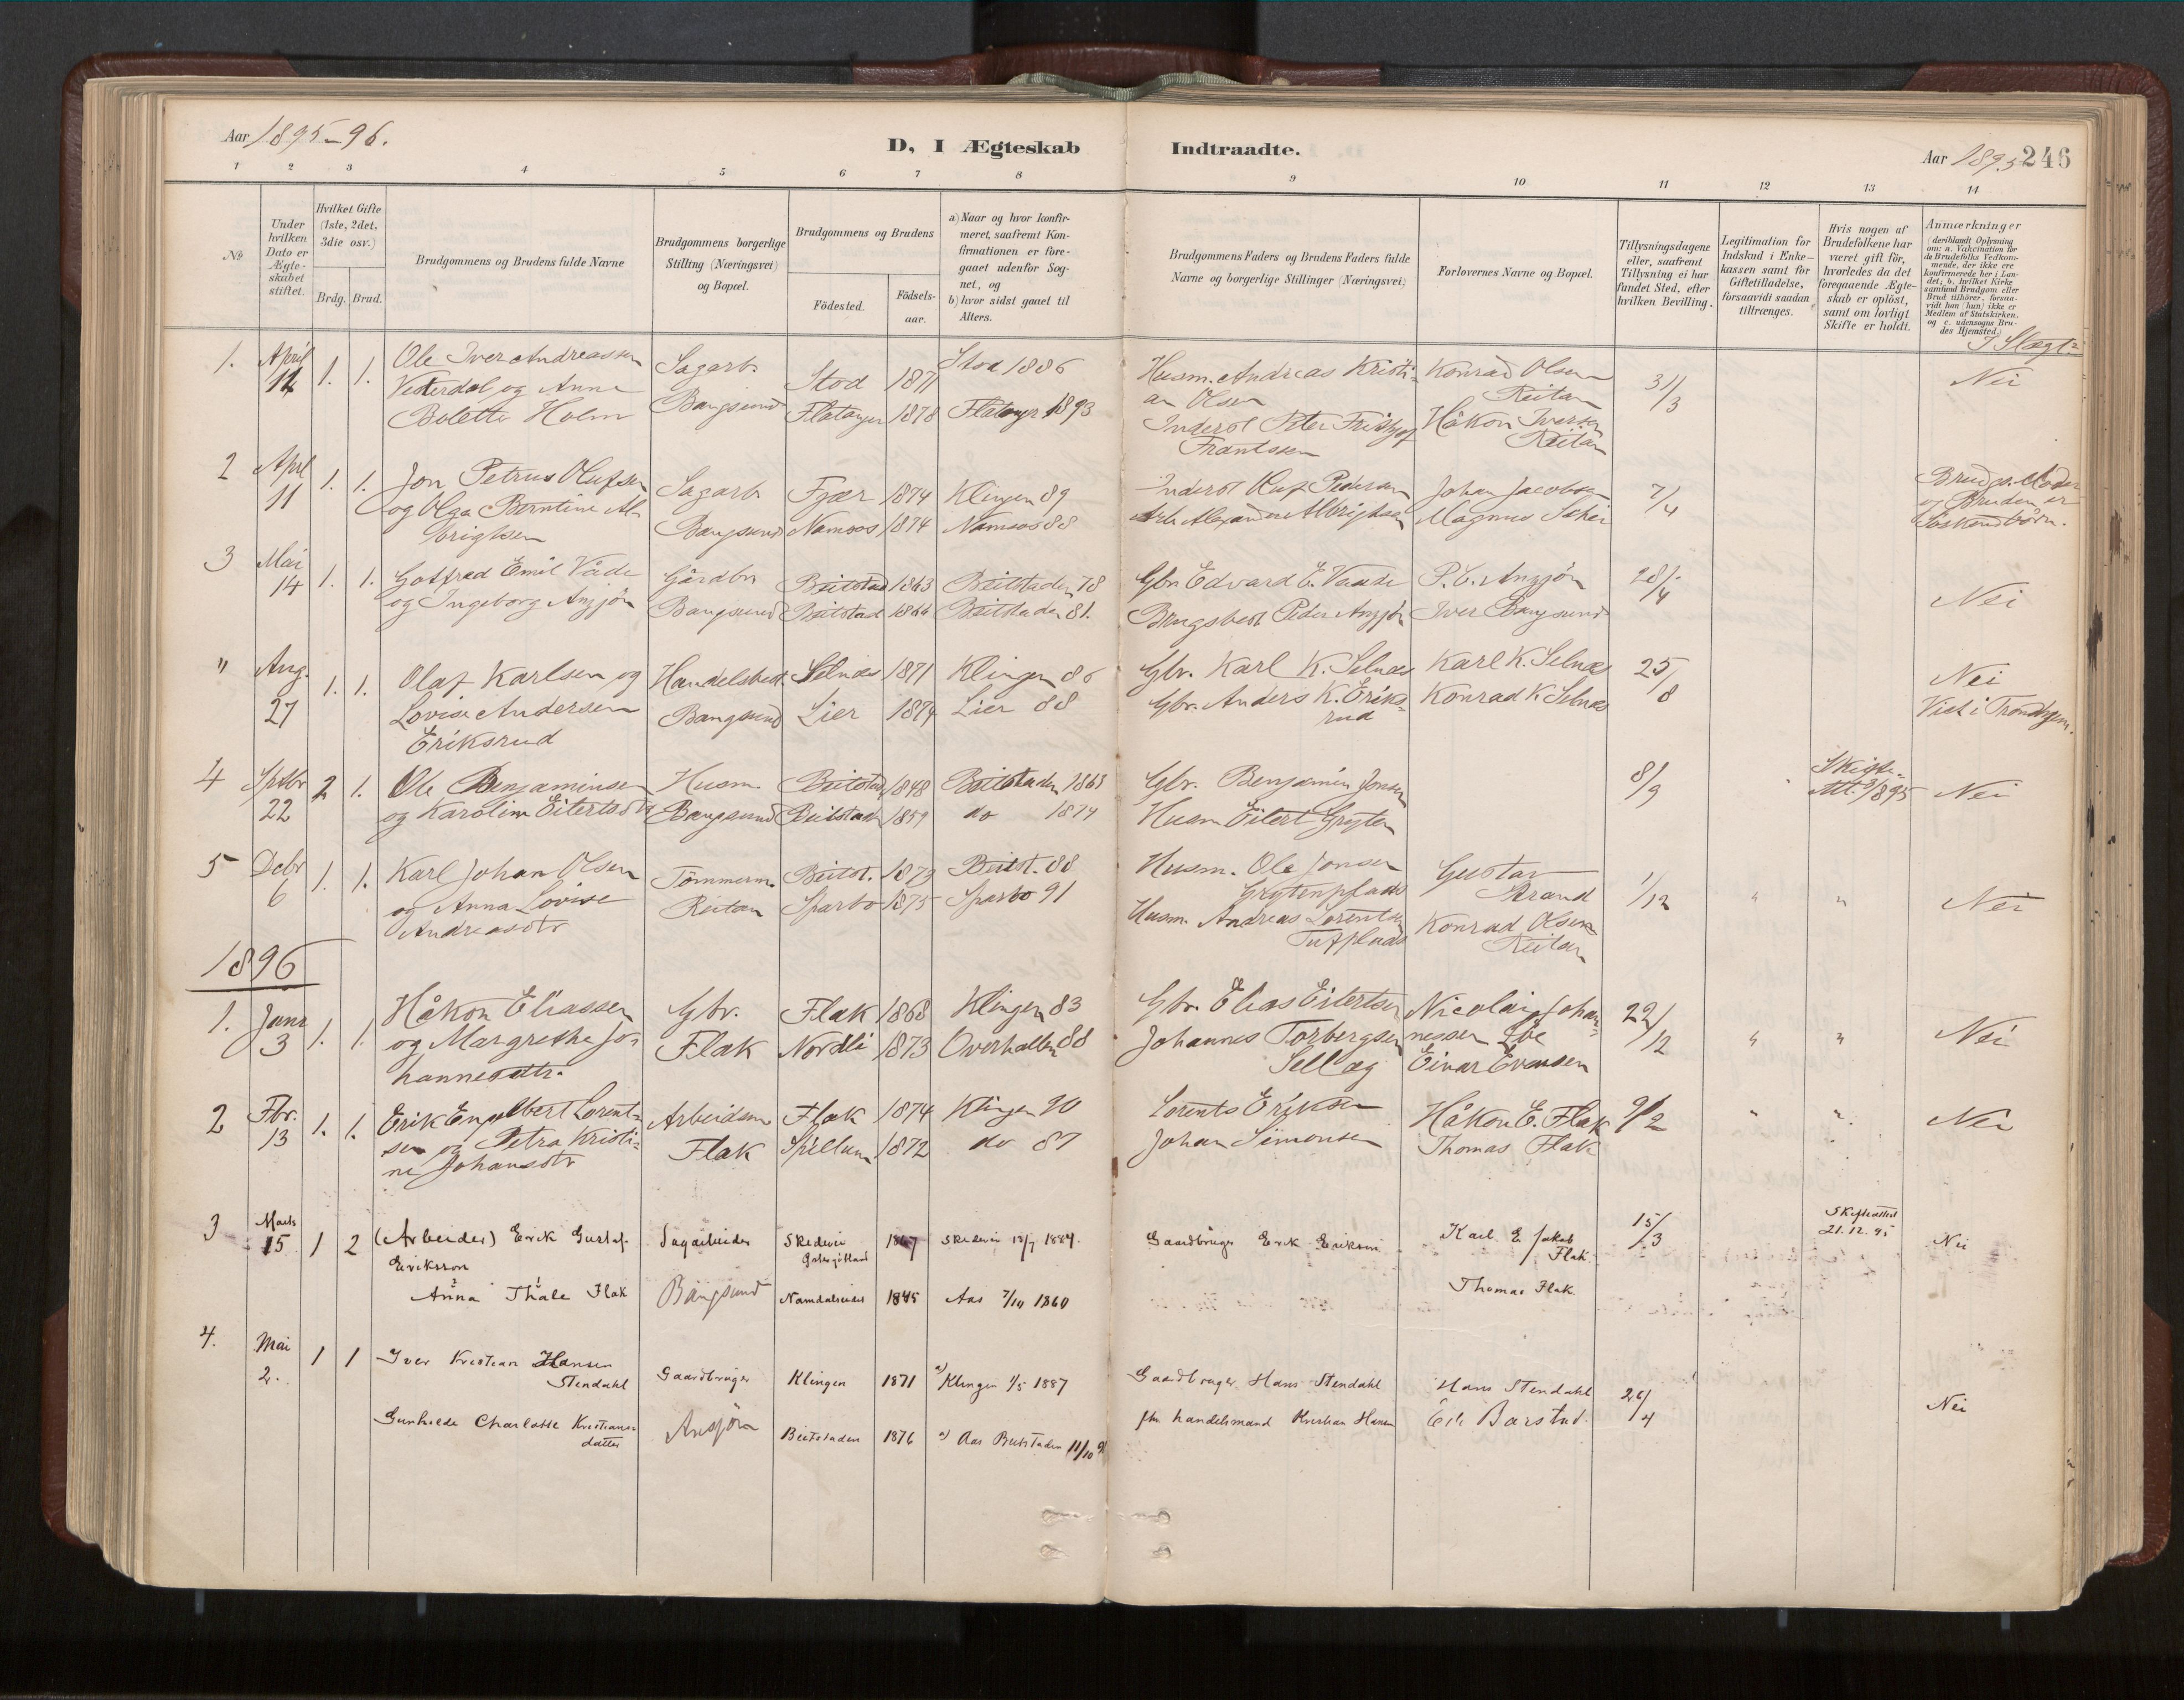 Aar 1895-96.
D, I Ægteskab Indtraadte.
Aar 1895 246
1 2 3 4 5 6 7 8 9 10 11 12 13 14
No
Under hvilken Dato er Ægteskabet stiftet.
Hvilket Gifte (1ste, 2det, 3die osv.)
Brdg. Brud.
Brudgommens og Brudens fulde Navne
Brudgommens borgerlige Stilling (Næringsvei) og Bopæl.
Brudgommens og Brudens
Födested.
Födsels-aar.
a) Naar og hvor konfirmeret, saafremt Konfirmationen er foregaaet udenfor Sognet, og
b) hvor sidst gaaet til Alters.
Brudgommens Faders og Brudens Faders fulde Navne og borgerlige Stillinger (Næringsvei)
Forlovernes Navne og Bopæl.
Tillysningsdagene eller, saafremt Tillysning ei har fundet Sted, efter hvilken Bevilling.
Legitimation for Indskud i Enkekassen samt for Giftetilladelse, forsaavidt saadan tiltrænges.
Hvis nogen af Brudefolkene har været gift för, hvorledes da det foregaaende Ægteskab er oplöst, samt om lovligt Skifte er holdt.
Anmærkninger
(deriblandt Oplysning om: a. Vakcination for de Brudefolks Vedkommende, der ikke ere konfirmerede her i Landet; b. hvilket Kirkesamfund Brudgom eller Brud tilhörer, forsaavidt han (hun) ikke er Medlem af Statskirken, og c. udensogns Brudes Hjemsted.)
I Slægt?
1. April 1. 1. Ole Iver Andreassen Sagarb. Stod 1871 Stod 1886 Husm. Andreas Kristi- Konrad Olsen 31/3 Nei
Vederdal og Anna Bangsund Flatanger 1878 Flatanger 1893 an Olsen Reitan
Bolette Holm Inderst Peter Fritjof Håkon Iversen
Frantsen Reitan
2 April 11 1. 1. Jon Petrus Olufsen Sagarb Fjær 1874 Klingen 89 Inderst Oluf Pedersen Johan Jacobsen 7/4 Brudg. Moder
og Olga Berntine Al- Bangsund Namsos 1874 Namsos 88 Arb. Alexander Albrigtsen Magnus og Bruden er
brigtsen Söskendbörn.
3 Mai 14 1. 1. Gotfred Emil Våde Gårdbr Beitstad 1863 Beitstaden 78 Gbr. Edvard E. Vaade P. C. Anzjön 28/4 Nei
og Ingeborg Anzjön Bangsund Beitstad 1866 Beitstaden 81. Peder Anzjön Iver Bangsund
" Aug. 27 1. 1. Olaf Karlsen og Handelsbest. Selnæs 1871 Klingen 86 Gbr. Karl K. Selnæs Karl K. Selnæs 25/8 Nei
Lovise Andersen Bangsund Lier 1874 Lier 88 Gbr. Anders K. Eriks- Konrad K. Selnæs Viet i Trondhjem.
Eriksrud rud
4 Septbr 22 2 1. Ole Benjaminsen Husm. Beitstad 1848 Beitstaden 1863 Gbr. Benjamin Jonsen 8/9 Skifte- Nei
og Karoline Eilertsdtr Bangsund Beitstad 1859 do 1874 Husm Eilert Gryten Att. 1895
5 Debr 6 1. 1. Karl Johan Olsen Tömmerm. Beitst. 1873 Beitst. 88 Husm. Ole Jonsen Gustav 1/12 " " Nei
og Anna Lovise Reitan Sparbo 1875 Sparbo 91 Grytenplads Strand
Andreasdtr Husm. Andreas Lorentsen Konrad Olsen
Tufplads Reitan
1896
1. Janr 3 1. 1. Håkon Eliassen Gbr. Flak 1868 Klingen 83 Gbr. Elias Eilertsen Nicolai Johan- 22/12 " " Nei
og Margrethe Jo- Flak Nordli 1873 Overhallen 88 Johannes Torbergsen nessen
hannesdtr. Sellæg Einar Evensen
2 Fbr. 13 1. 1. Erik Engelbert Lorent- Arbeidsm Flak 1874 Klingen 90 Lorents Eriksen Håkon E. Flak 9/2 " " Nei
sen og Petra Kristi- Flak Spillum 1872 do 87 Johan Simonsen Thomas Flak
ne Johansdtr
3 Marts 15 1 2 (Arbeider) Erik Gustaf Sagarbeider Skedevi 1867 Skedevi 13/7 1884. Gaardbruger Erik Eriksson Karl E. Jakob 15/3 Skifteattest Nei
Eriksson Östergötland Flak. 21.12.95
Anna Thale Flak Bangsund Namdalseidet 1845 Aas 7/10 1860 Thomas Flak
4. Mai 2. 1 1 Iver Kristian Hansen
Stendahl Gaardbruger Klingen 1871 a) Klingen 1/5 1887 Gaardbruger Hans Stendahl Hans Stendahl 26/4 Nei
Gunhilde Charlotte Kristians- Beitstaden 1876 a) Aas Beitstaden 11/10 91 fhv handelsmand Kristian Hansen Barstad.
datter